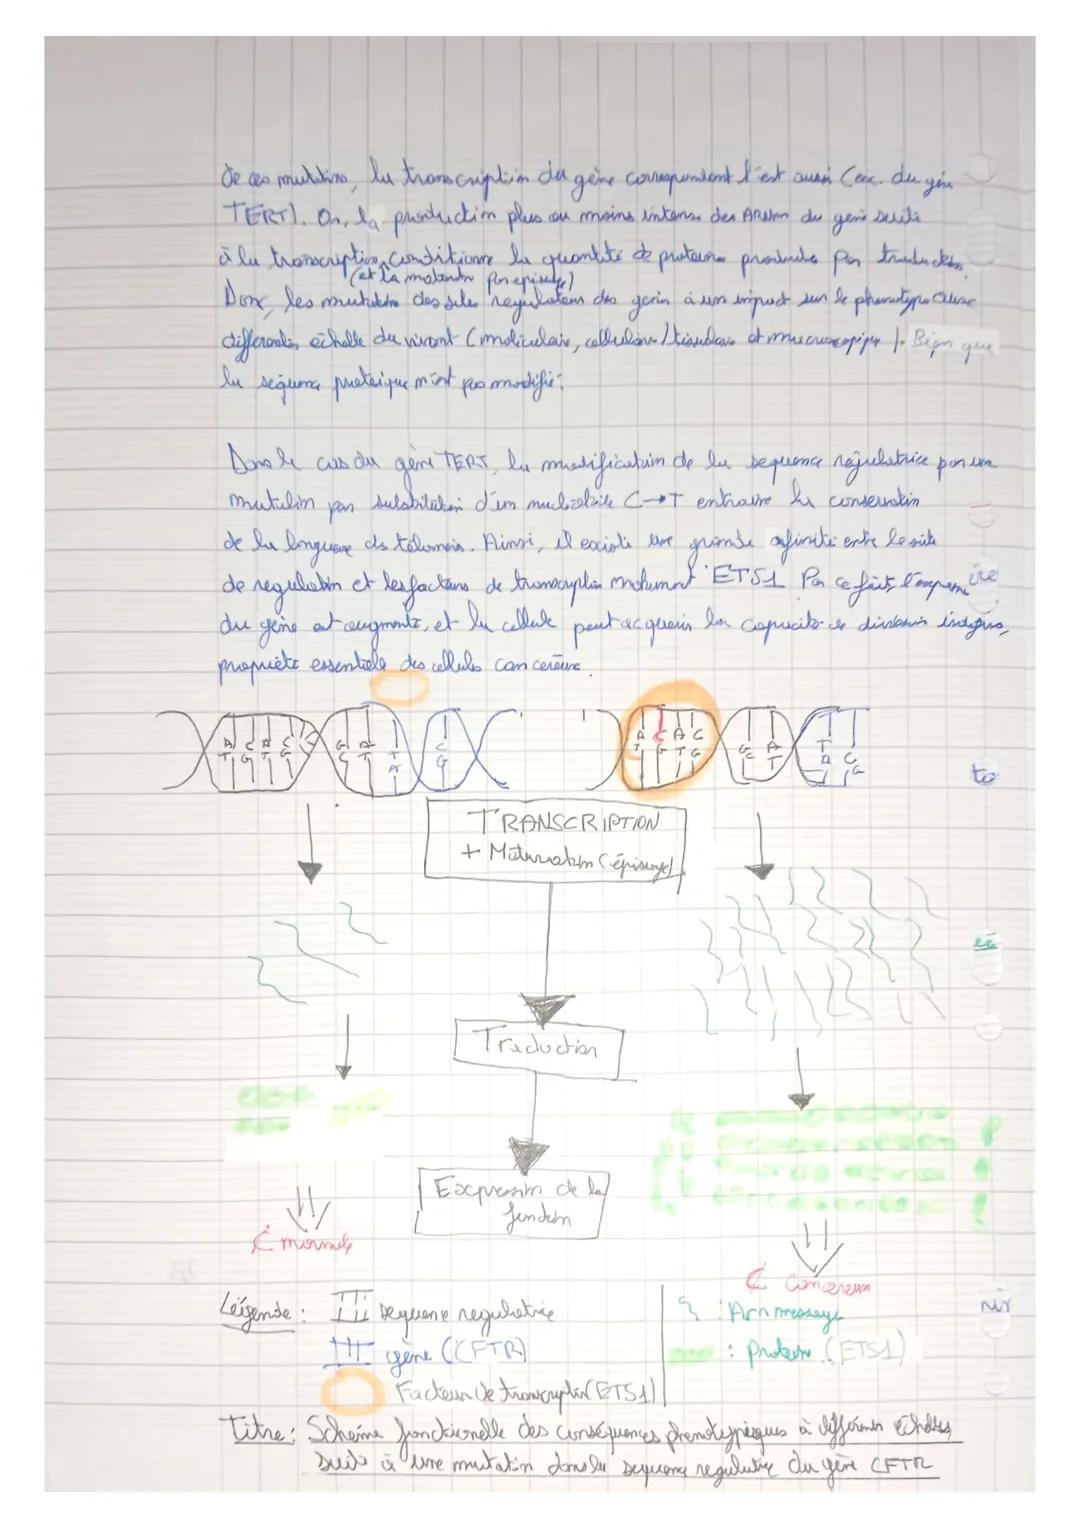 de ces mutations, la transcription du gène correspondant l'est aussi (ex. du gène
TERT). Or, la production plus ou moins intense des ARNm du gène suite
à la transcription, conditionne la quantité de protéines produites par traduction.
(et la maturation par épissage)
Donc, les mutations des sites régulateurs des gènes à un impact sur le phénotype à une
différentes échelle du vivant (moléculaire, cellulaire/tissulaire et macroscopique). Bien que
la séquence protéique n'est pas modifié.
Dans le cas du gène TERT, la modification de la sequence régulatrice par une
mutation par substitution d'un nucléotide C→T entraine la conservation
de la longueur des télomères. Ainsi, il existe une grande affinité entre le site
de régulation et les facteurs de transcription notamment ETS1 Par ce fait, l'expression
du gène est augmenté, et la cellule peut acquérir la capacité de divisions
propriété essentielle des cellules cancéreuse.
ire
A C A C G A T C
T G T G C T A G
A C A C G A T C
T G T G C T A G
to
TRANSCRIPTION
+ Maturation (épissage)
eé
Traduction
Expression de la
fonction
₵ normale
₵ cancéreuse
Légende :
Séquence régulatrice
: Arn messager
nir
gène (CFTR)
: Protein (ETS1)
Facteur de transcription (ETS1)
Titre: Schéma fonctionnelle des conséquences phénotypiques à différents échelles
suite à une mutation dans la séquence régulatrice du gène CFTR